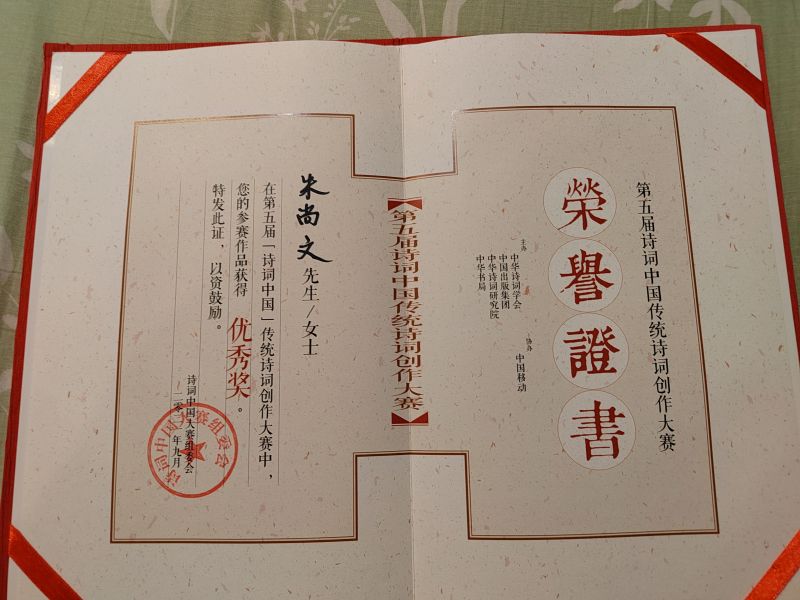 第五届诗词中国传统诗词创作大赛
榮譽證書
主办
中华诗词学会
中国出版集团
中华诗词研究院
中华书局
协办
中国移动
第五届诗词中国传统诗词创作大赛
朱尚文 先生/女士
在第五届「诗词中国」传统诗词创作大赛中，
您的参赛作品获得 优秀奖。
特发此证，以资鼓励。
诗词中国大赛组委会
年九月
诗词中国大赛组委会